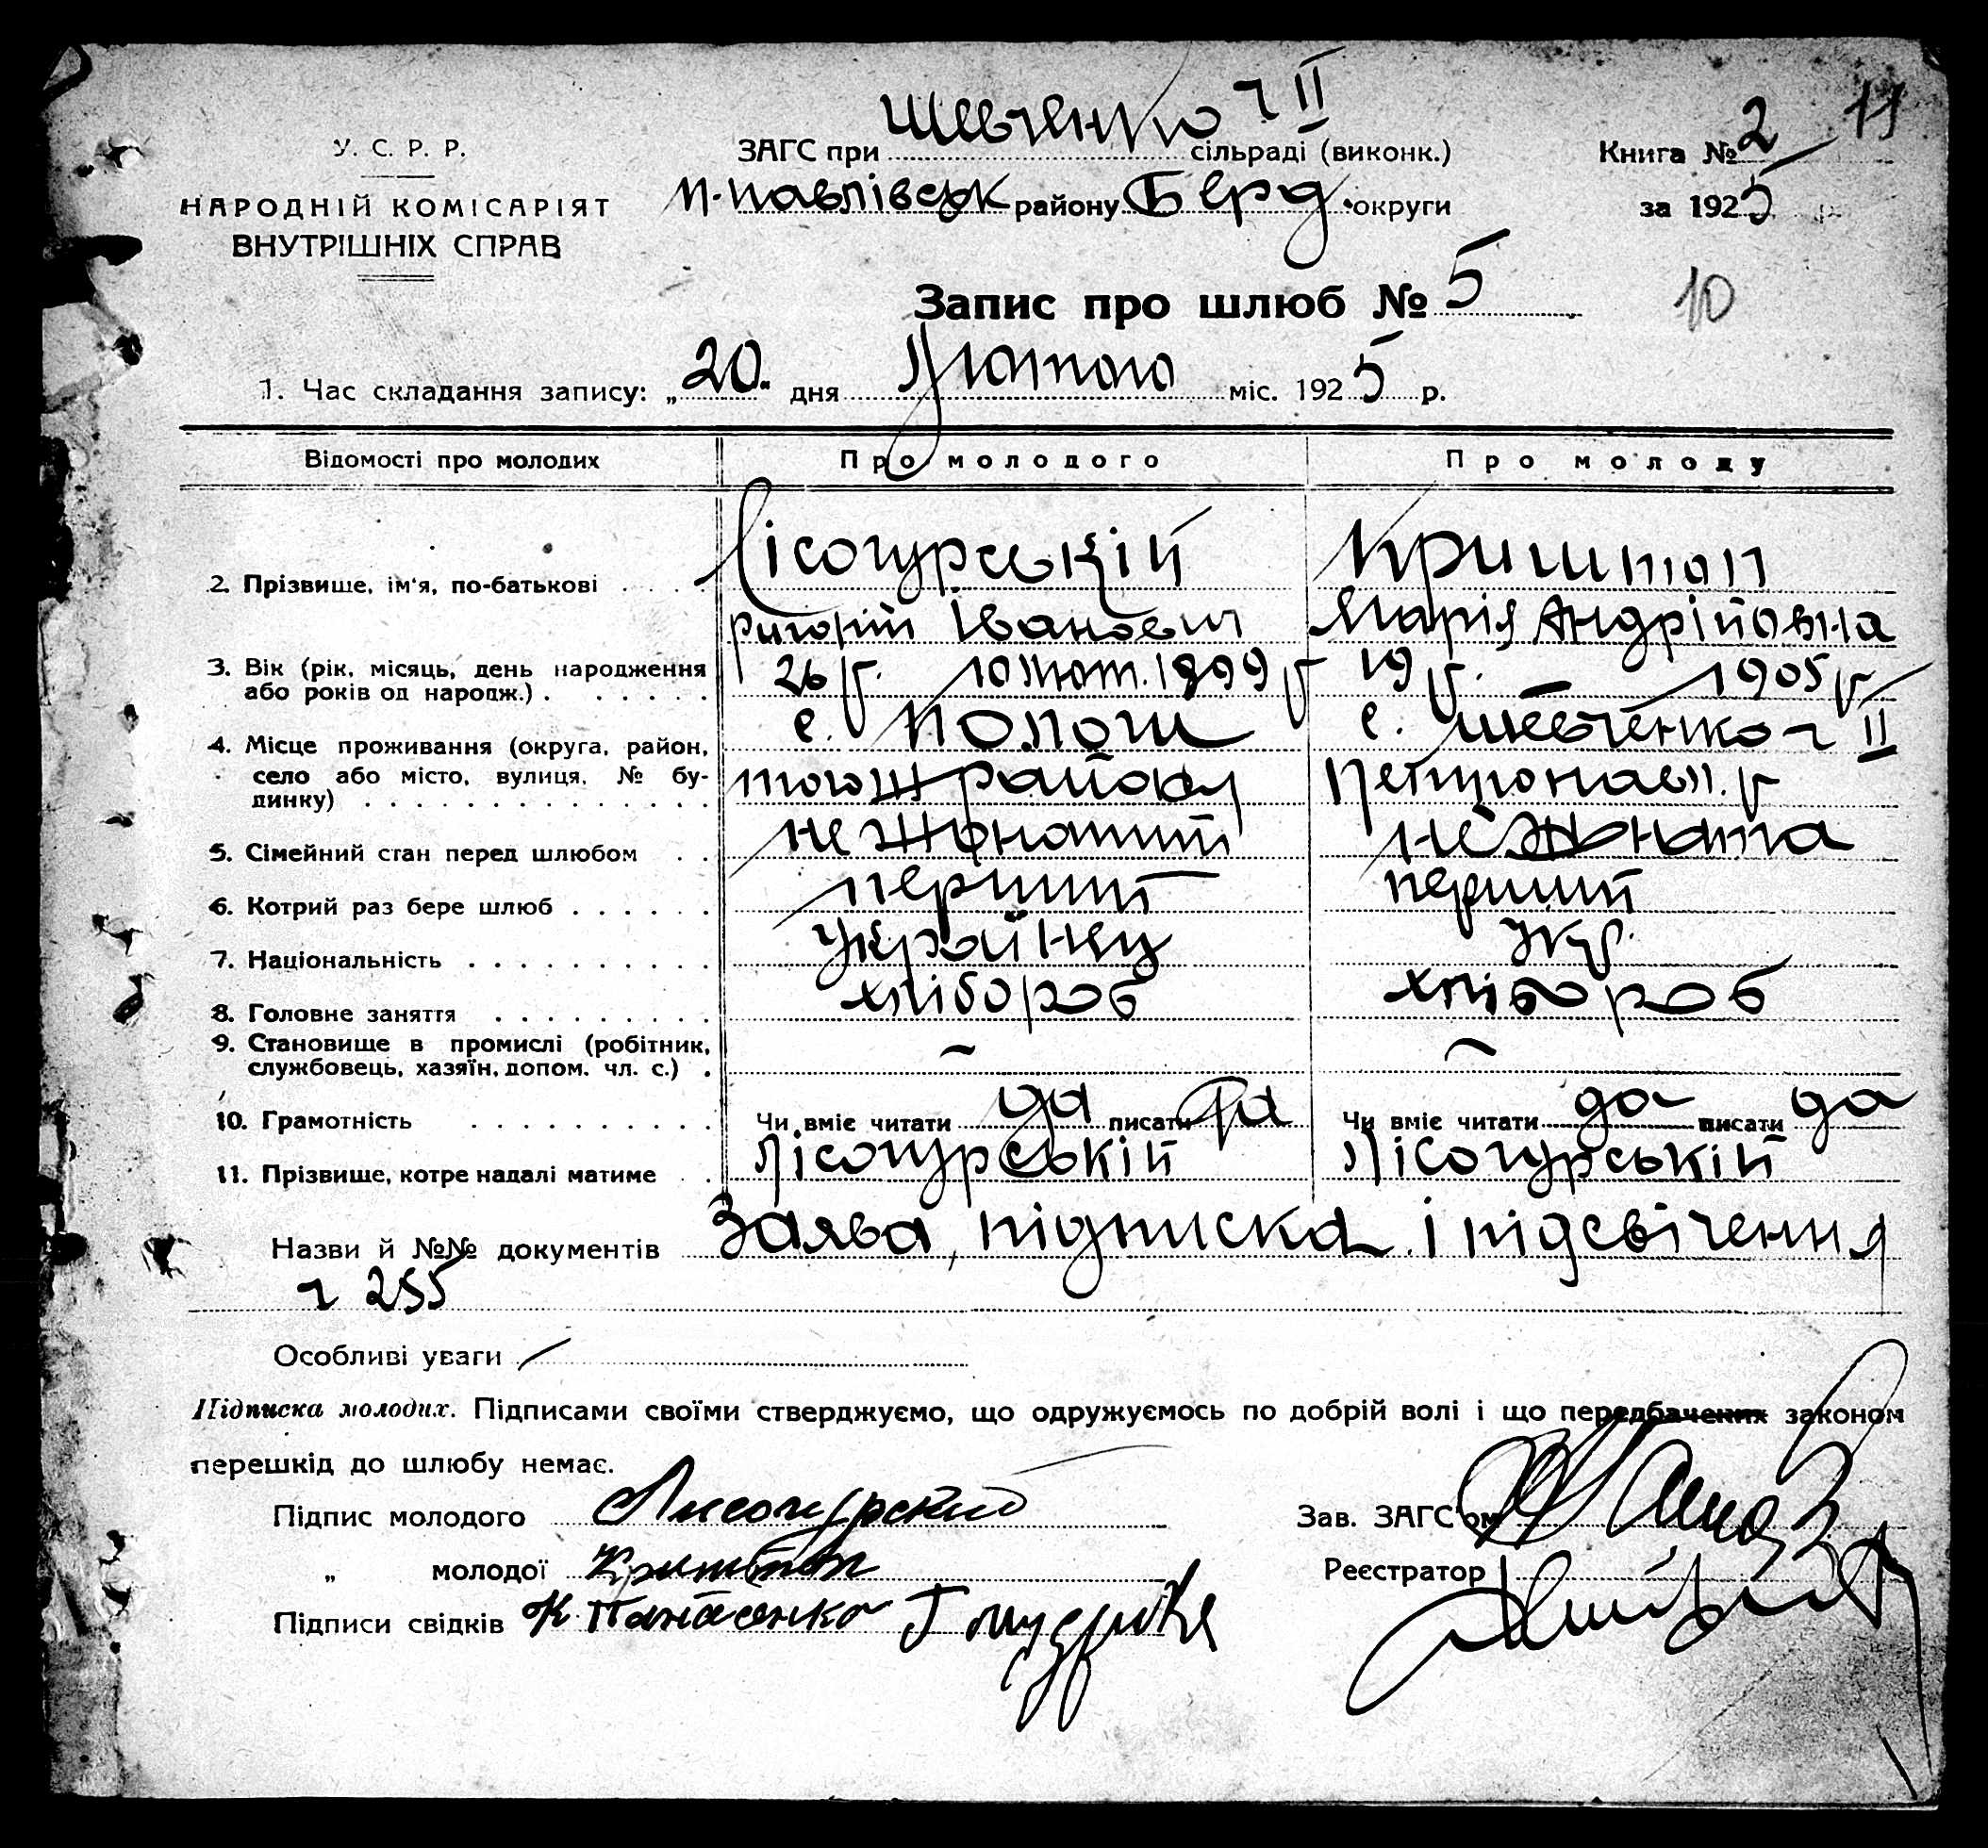 Шевченко ч II
У. С. Р. Р.
ЗАГС при сільраді (виконк.)
Книга № 2 11
НАРОДНІЙ КОМІСАРІЯТ
П-павлівськ району Берд. округи
за 1925 р.
ВНУТРІШНІХ СПРАВ
Запис про шлюб № 5
10
1. Час складання запису: „20" дня Лютого міс. 1925 р.
Відомості про молодих Про молодого Про молоду
Лісогурській Криштоп
2. Прізвище, ім'я, по-батькові
Григорій Іванович Марія Андрійовна
3. Вік (рік, місяць, день народження
або років од народж.)
26 р. 10 1899 р 19 р. 1905 р
4. Місце проживання (округа, район,
село або місто, вулиця, № бу-
динку)
с. Пологи с. Шевченко ч II
тогож району Петропавл. р
5. Сімейний стан перед шлюбом не жонатий не жоната
6. Котрий раз бере шлюб перший перший
7. Національність Українец Укр.
8. Головне заняття хлібороб хлібороб
9. Становище в промислі (робітник,
службовець, хазяїн, допом. чл. с.) – –
10. Грамотність Чи вміє читати да писати да Чи вміє читати да писати да
11. Прізвище, котре надалі матиме Лісогурській Лісогурській
Назви й №№ документів Заява, підписка і підсвічення
ч 255
Особливі уваги –
Підписка молодих. Підписами своїми стверджуємо, що одружуємось по добрій волі і що передбачених законом
перешкід до шлюбу немає.
Підпис молодого Лисогурский
Зав. ЗАГС'ом
„ молодої Криштоп
Реєстратор
Підписи свідків К Панасенко Г